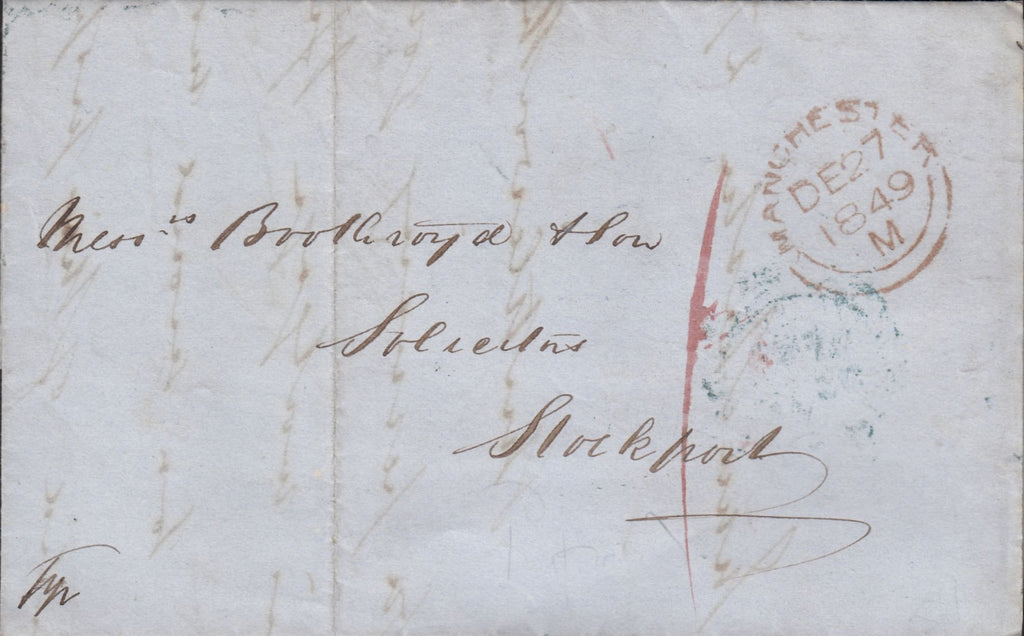 MANCHESTER
DE27
1849
M
Mess.rs Boothroyd & Son
Solicitors
Stockport